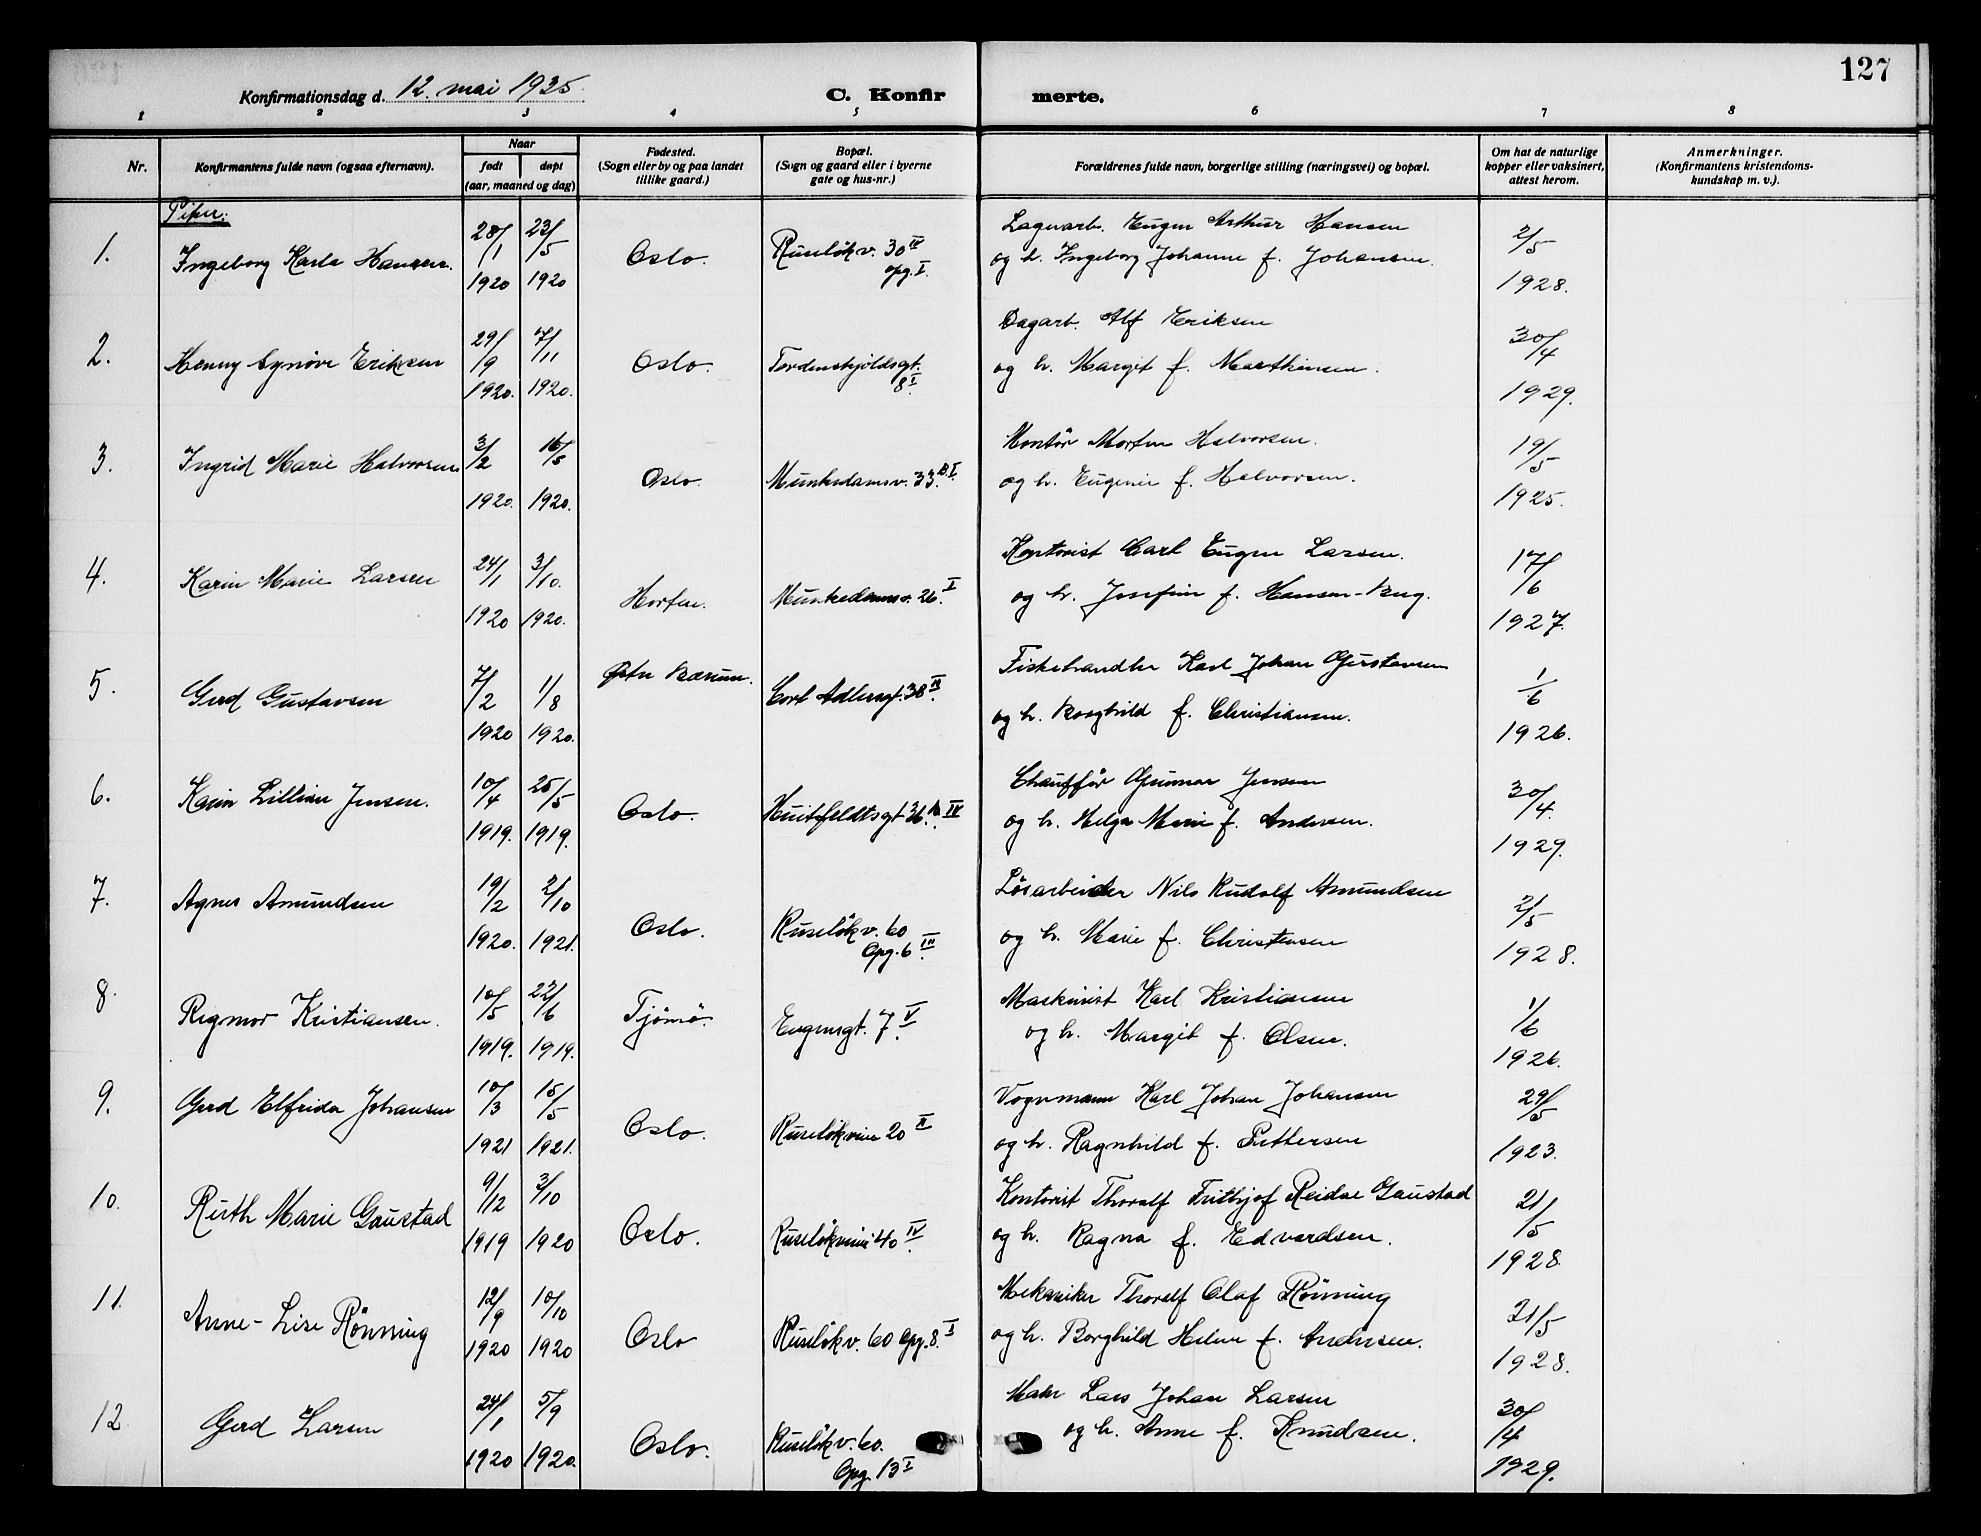 127
Konfirmationsdag d. 12. mai 1935.
C. Konfir
merte.
1 2 3 4 5 6 7 8
Nr.
Konfirmantens fulde navn (ogsaa efternavn).
Naar
født
døpt
(aar, maaned og dag)
Fødested.
(Sogn eller by og paa landet
tillike gaard.)
Bopæl.
(Sogn og gaard eller i byerne
gate og hus-nr.)
Forældrenes fulde navn, borgerlige stilling (næringsvei) og bopæl.
Om hat de naturlige
kopper eller vaksinert,
attest herom.
Anmerkninger.
(Konfirmantens kristendoms-
kundskap m. v.).
Piker:
1. Ingeborg Karla Hansen. 28/1 1920 23/5 1920 Oslo. Ruseløkv. 30 IV opg. I.
Lagerarb. Eugen Arthur Hansen
og h. Ingeborg Johanne f. Johansen. 2/5 1928.
2. Henny Synøve Eriksen 29/9 1920. 7/11 1920. Oslo. Tordenskjoldsgt. 8 I
Dagarb. Alf Eriksen
og h. Margit f. Marthinsen. 30/4 1929.
3. Ingrid Marie Halvorsen 3/2 1920. 16/5 1920. Oslo. Munkedamsv. 33. B. I.
Montör Morten Halvorsen.
og h. Eugenie f. Halvorsen. 19/5 1925.
4. Karin Marie Larsen 24/1 1920 3/10. 1920. Horten. Munkedamsv. 26. I
Kontorist Carl Eugen Larsen.
og h. Josefine f. Hansen-Berg. 17/6 1927.
5. Gerd Gustavsen 7/2 1920 1/8 1920. Østre Bærum. Cort Adlersgt. 38 II.
Fiskehandler Karl Johan Gustavsen
og h. Borghild f. Christiansen. 1/6 1926.
6. Karin Lillian Jensen. 10/4 1919. 25/5 1919. Oslo. Huitfeldtsgt. 36. b. IV
Chauffør Gunnar Jensen
og h. Helga Marie f. Andersen. 30/4 1929.
7. Agnes Amundsen 19/2 1920. 2/10 1921. Oslo. Ruseløkv. 60 Opg. 6 III.
Lösarbeider Nils Rudolf Amundsen
og h. Marie f. Christensen 2/5 1928.
8. Rigmor Kristiansen. 10/5 1919. 22/6 1919. Tjömö. Eugensgt. 7 V.
Maskinist Karl Kristiansen
og h. Margit f. Olsen. 1/6 1926.
9. Gerd Elfrida Johansen 10/3 1921 15/5 1921. Oslo. Ruseløkveien 20 II
Vognmann Karl Johan Johansen
og h. Ragnhild f. Pettersen 29/5 1923.
10. Ruth Marie Gaustad 9/12 1919 3/10 1920 Oslo. Ruseløkveien 40 IV.
Kontorist Thoralf Frithjof Reidar Gaustad
og h. Ragna f. Edvardsen. 21/5 1928.
11. Anne-Lise Rönning 12/9 1920 10/10 1920 Oslo Ruseløkv. 60 Opg. 8. I
Mekaniker Thoralf Olaf Rönning
og h. Borghild Helene f. Andersen. 21/5 1928.
12. Gerd Larsen 24/1 1920 5/9 1920. Oslo. Ruseløkv. 60. Opg. 13 I
Maler Lars Johan Larsen
og h. Anne f. Knudsen. 30/4 1929.